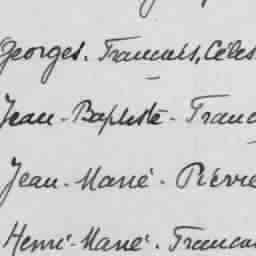 Georges. Francois, Céles
Jean-Baptiste - Franc
Jean-Marie - Pierre
Henri-Marie. Francoi